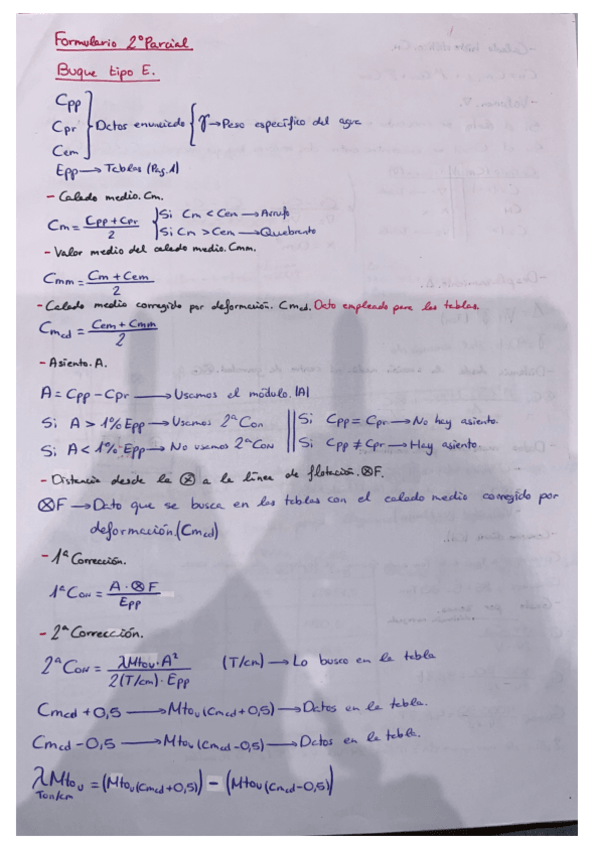 Formulario 2º Parcial
Buque tipo E.
Cpp
Cpr } Datos enunciado { γ → Peso específico del agua
Cem
Epp → Tablas (Pag. 1)
- Calado medio. Cm.
Cm = (Cpp + Cpr) / 2 { Si Cm < Cem → Arrufo
Si Cm > Cem → Quebranto
- Valor medio del calado medio. Cmm.
Cmm = (Cm + Cem) / 2
- Calado medio corregido por deformación. Cmcd. Dato empleado para las tablas.
Cmcd = (Cem + Cmm) / 2
- Asiento. A.
A = Cpp - Cpr → Usamos el módulo. |A|
Si A > 1% Epp → Usamos 2ª Con || Si Cpp = Cpr → No hay asiento.
Si A < 1% Epp → No usamos 2ª Con || Si Cpp ≠ Cpr → Hay asiento.
- Distancia desde la ⊗ a la línea de flotación. ⊗F.
⊗F → Dato que se busca en las tablas con el calado medio corregido por
deformación. (Cmcd)
- 1ª Corrección.
1ª Con = (A · ⊗F) / Epp
- 2ª Corrección.
2ª Con = (λMtou · A²) / (2(T/cm) · Epp) (T/cm) → Lo busco en la tabla
Cmcd + 0,5 → Mtou (Cmcd + 0,5) → Datos en la tabla.
Cmcd - 0,5 → Mtou (Cmcd - 0,5) → Datos en la tabla.
λMtou = (Mtou (Cmcd + 0,5)) - (Mtou (Cmcd - 0,5))
Ton/cm